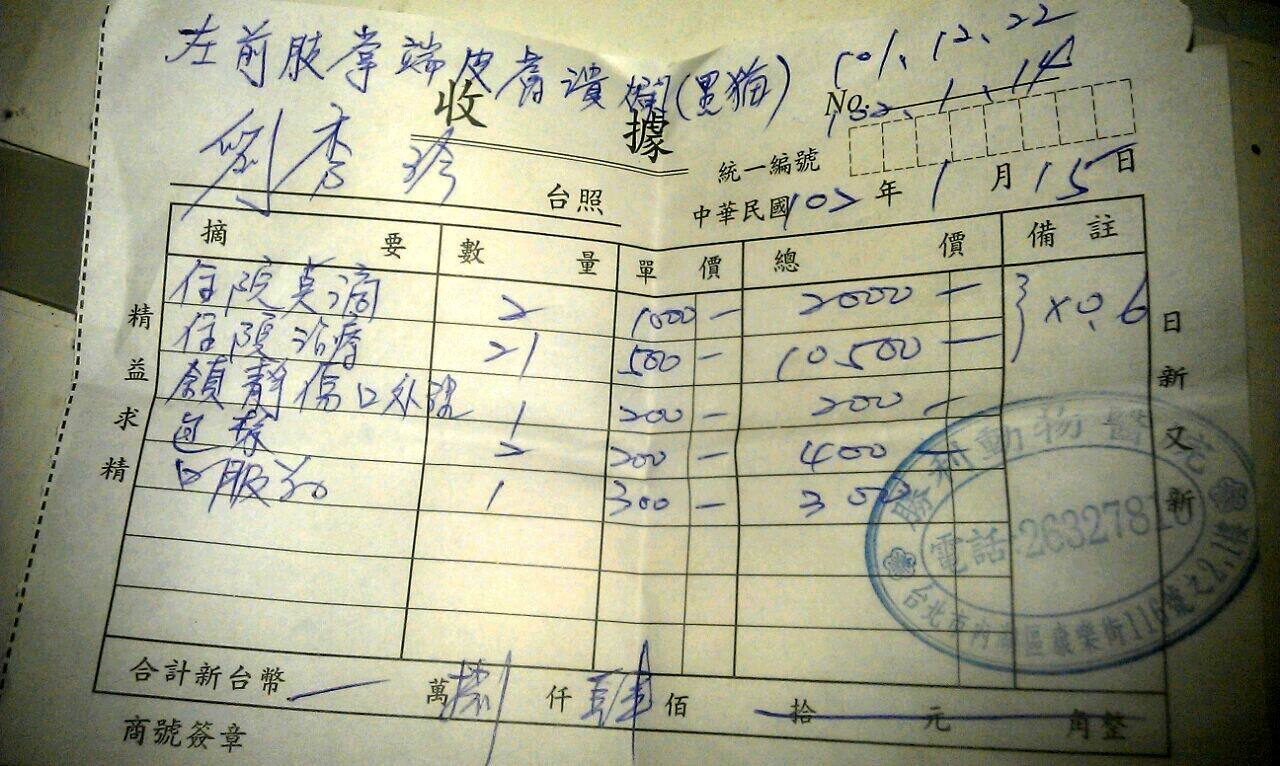 左前肢掌端皮膚潰爛(黑猫) 101.12.22
102.1.14
收據 No.
統一編號
劉李珍 台照 中華民國102年1月15日
摘要 數量 單價 總價 備註
住院點滴 2 1000- 2000- } ×0.6
住院治療 21 500- 10,500-
傷口 1 200- 200-
包紮 2 200- 400-
口服药 1 300- 300
合計新台幣 萬捌仟肆佰拾元角整
商號簽章
精益求精
日新又新
動物醫院
電話:2632781
台北市內湖區康樂街116號之2,1樓